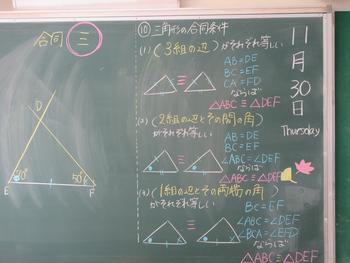 合同 ≡
D
70°
50°
E
F
⑩三角形の合同条件
(1)(3組の辺)がそれぞれ等しい
≡
AB=DE
BC=EF
CA=FD
ならば
△ABC≡△DEF
(2)(2組の辺とその間の角)
がそれぞれ等しい
≡
AB=DE
BC=EF
∠ABC=∠DEF
ならば
△ABC≡△DEF
(1組の辺とその両端の角)
がそれぞれ等しい
≡
BC=EF
∠ABC=∠DEF
∠BCA=∠EFD
ならば
△ABC≡△DEF
11
月
30
日
Thursday